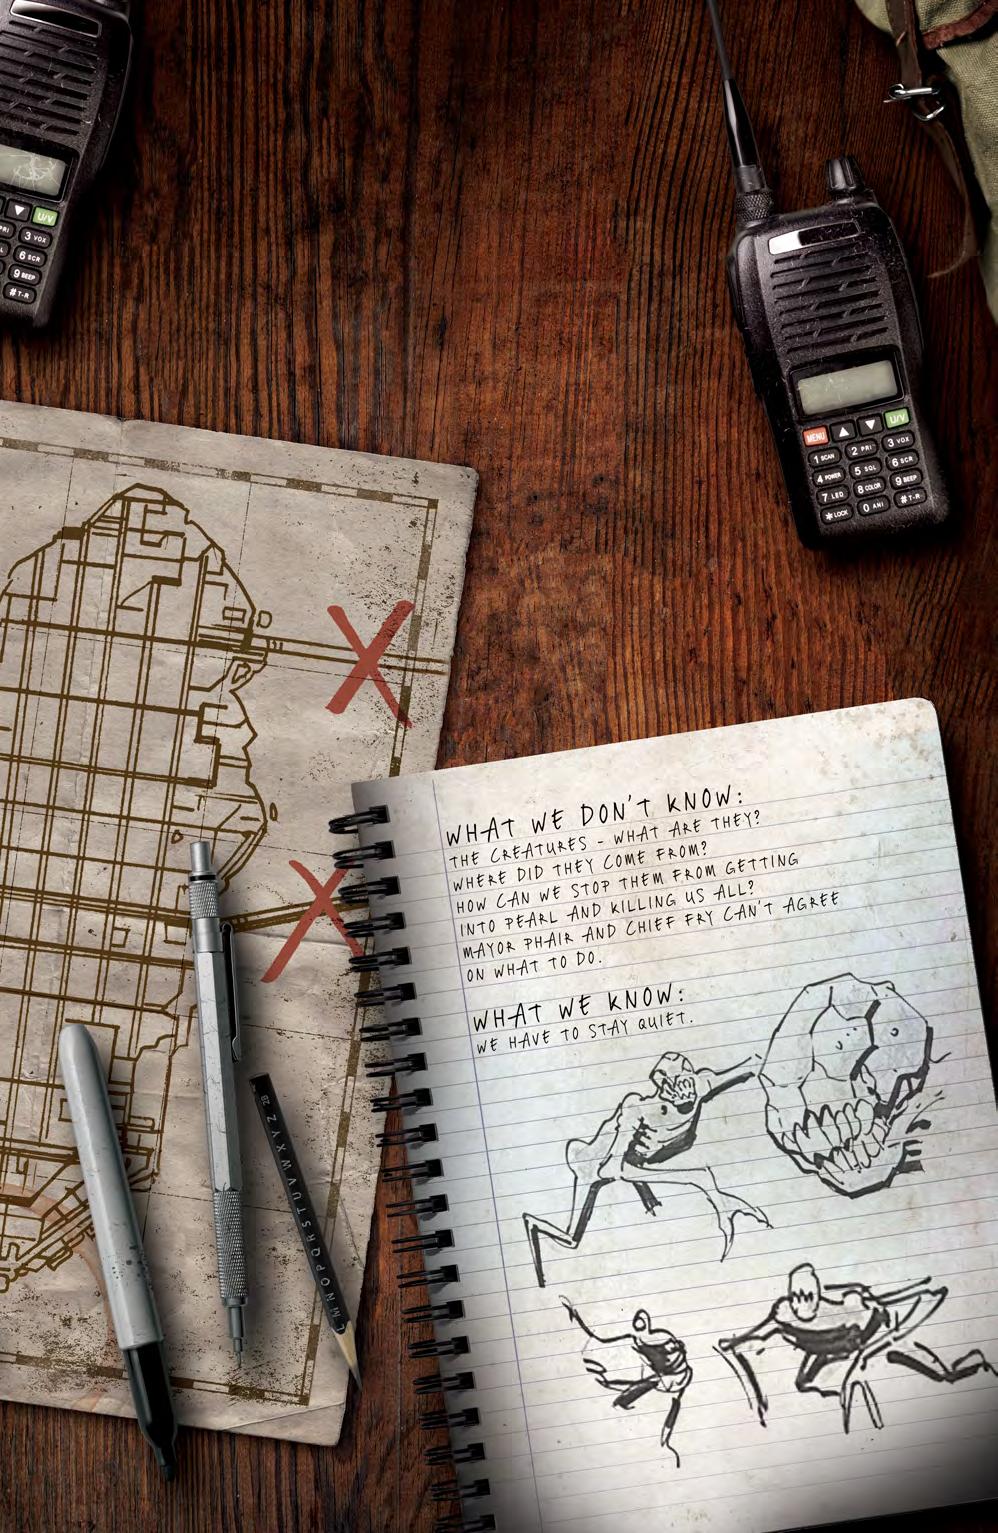 U/V
PRI
3 VOX
6 SCR
9 BEEP
# T-R
MENU
U/V
1 SCAN
2 PRI
3 VOX
4 POWER
5 SQL
6 SCR
7 LED
8 COLOR
9 BEEP
* LOCK
0 ANI
# T-R
WHAT WE DON'T KNOW:
THE CREATURES - WHAT ARE THEY?
WHERE DID THEY COME FROM?
HOW CAN WE STOP THEM FROM GETTING
INTO PEARL AND KILLING US ALL?
MAYOR PHAIR AND CHIEF FRY CAN'T AGREE
ON WHAT TO DO.
WHAT WE KNOW:
WE HAVE TO STAY QUIET.
L M N O P Q R S T U V W X Y Z 2B